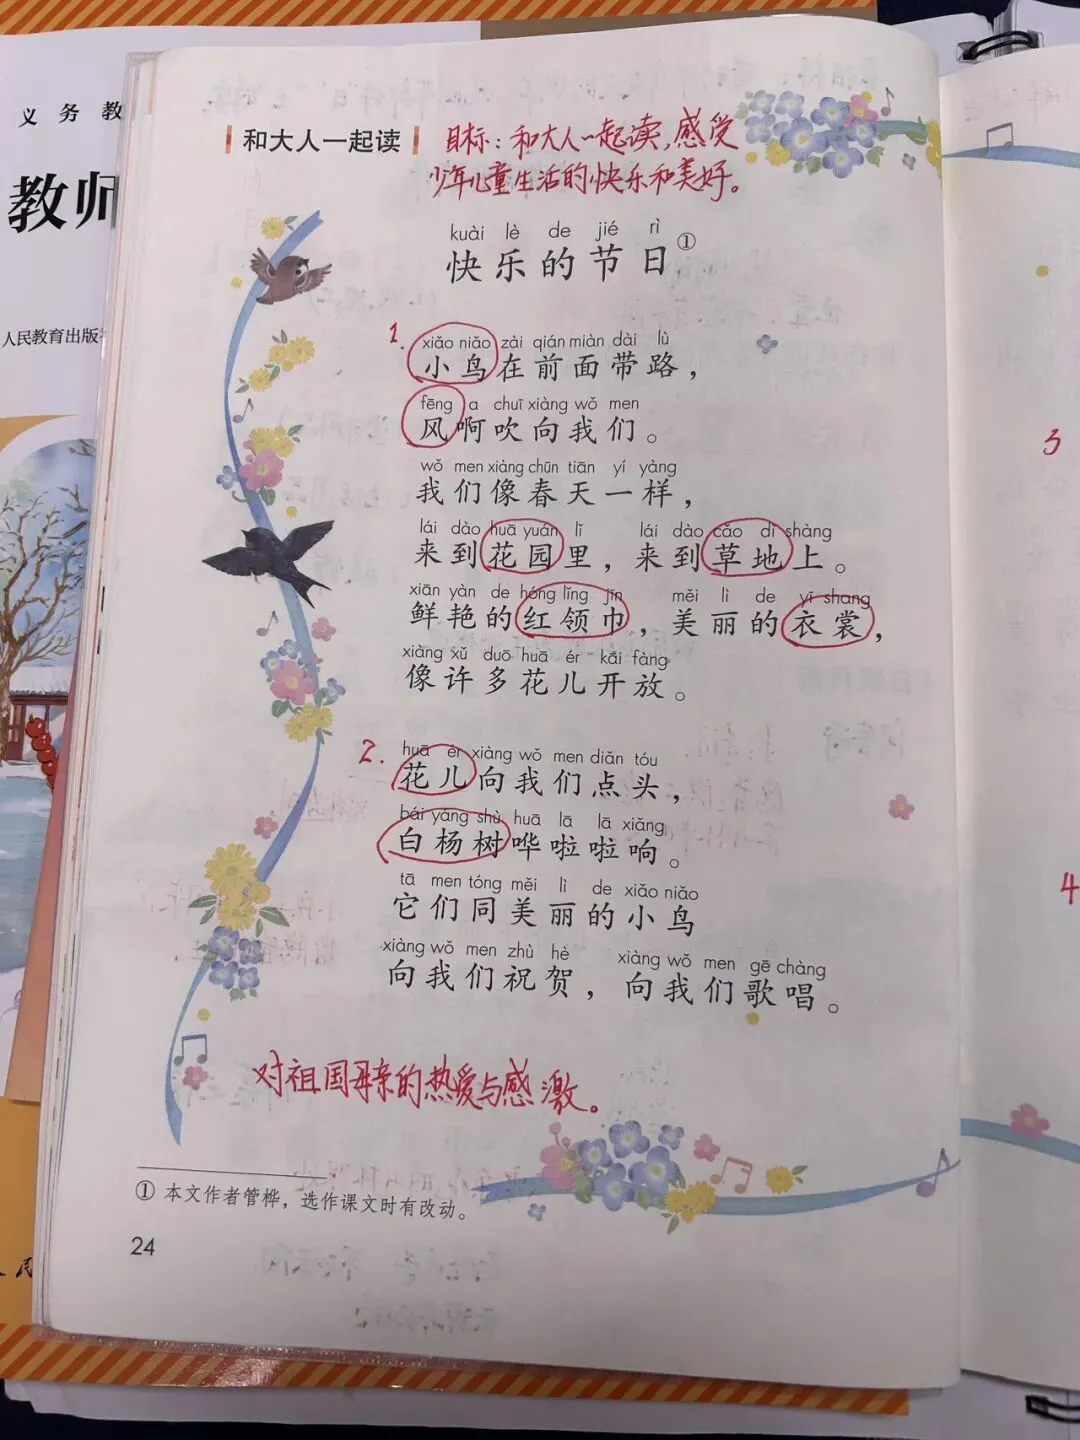 义 务 教
教师
人民教育出版社
和大人一起读
目标：和大人一起读，感受
少年儿童生活的快乐和美好。
kuài lè de jié rì
快乐的节日①
1.
xiǎo niǎo zài qián miàn dài lù
小鸟在前面带路，
fēng a chuī xiàng wǒ men
风啊吹向我们。
wǒ men xiàng chūn tiān yí yàng
我们像春天一样，
lái dào huā yuán lǐ lái dào cǎo dì shàng
来到花园里，来到草地上。
xiān yàn de hóng lǐng jīn měi lì de yī shang
鲜艳的红领巾，美丽的衣裳，
xiàng xǔ duō huā ér kāi fàng
像许多花儿开放。
2.
huā ér xiàng wǒ men diǎn tóu
花儿向我们点头，
bái yáng shù huā lā lā xiǎng
白杨树哗啦啦响。
tā men tóng měi lì de xiǎo niǎo
它们同美丽的小鸟
xiàng wǒ men zhù hè xiàng wǒ men gē chàng
向我们祝贺，向我们歌唱。
对祖国母亲的热爱与感激。
① 本文作者管桦，选作课文时有改动。
24
3
4